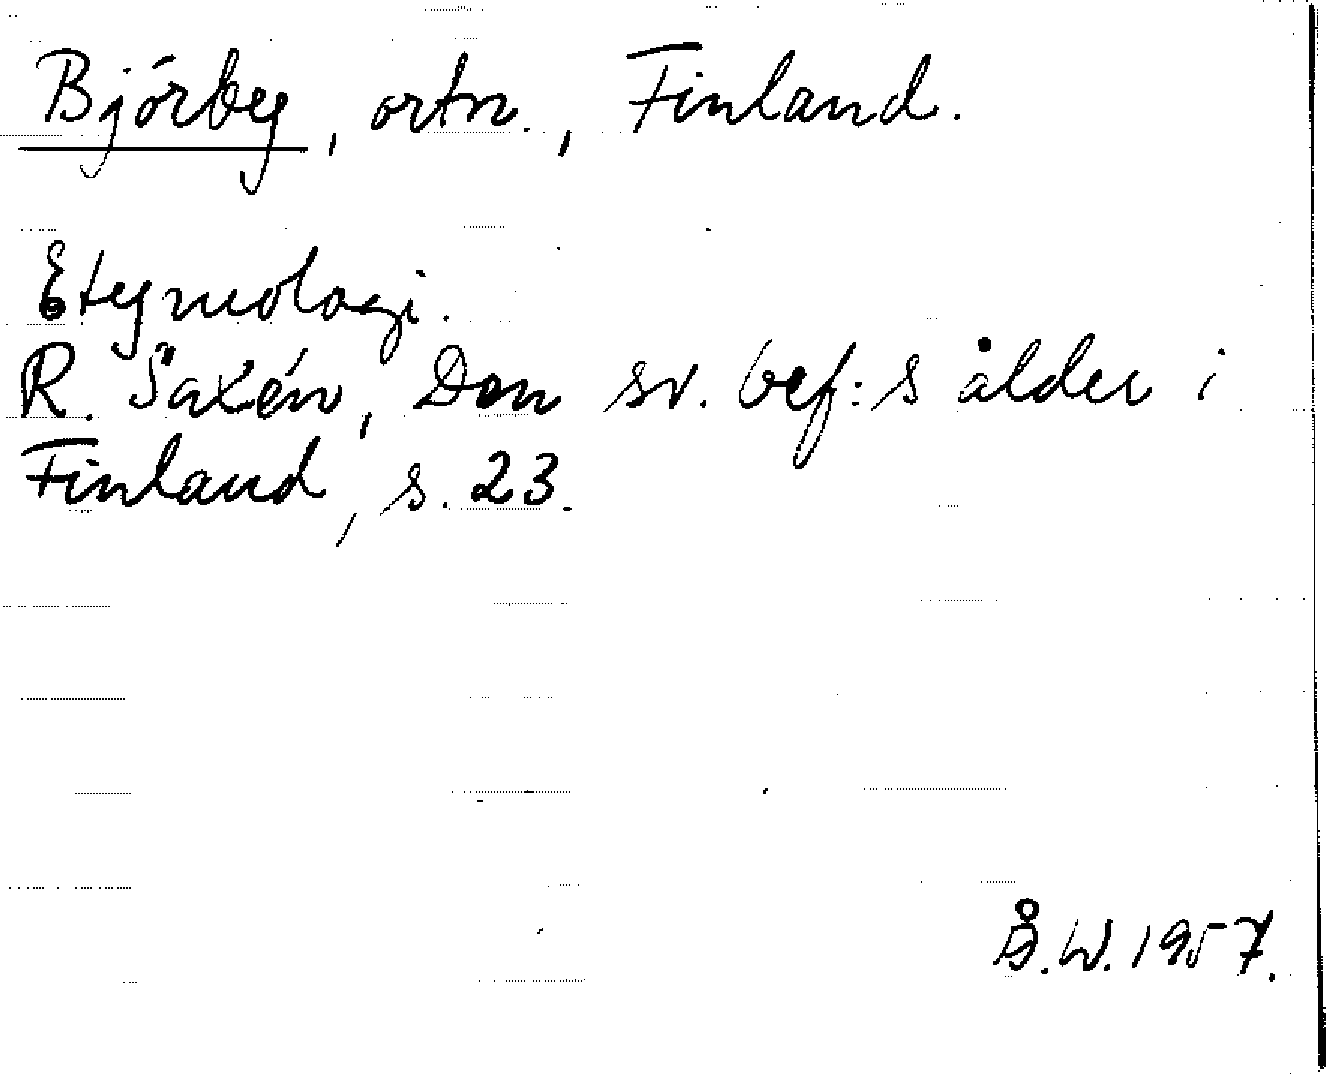 Björby, ortn., Finland.
Etymologi.
R. Saxén, Den sv. bef:s ålder i
Finland, s. 23.
Å.W. 1957.